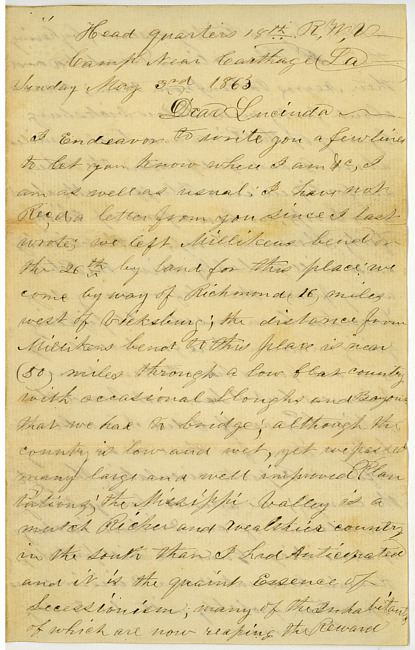 Head quarters 18th R, W V
Camp Near Carthage La
Sunday May 3rd 1863
Dear Lucinda
I Endeavor to write you a few lines
to let you know where I am &c, I
am as well as usual; I have not
Recd a letter from you since I last
wrote; we left Millikens bend on
the 26th by land for this place; we
come by way of Richmond 16, miles
west of Vicksburg; the distance from
Millikens bend to this place is near
(50) miles through a low flat country
with occasional Sloughs and Bayous
that we had to bridge; although the
country is low and wet, yet we passed
many large and well improved Plan
tations; the Missippi Valley is a
mutch Richer and Wealthier country
in the south than I had Anticipated
and it is the quaint Essence of
Secessionism; many of the Inhabitants
of which are now reaping the Reward